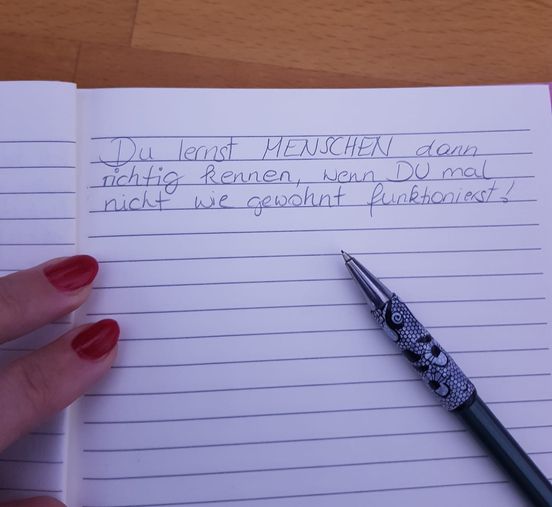 Du lernst MENSCHEN dann
richtig kennen, wenn DU mal
nicht wie gewohnt funktionierst!